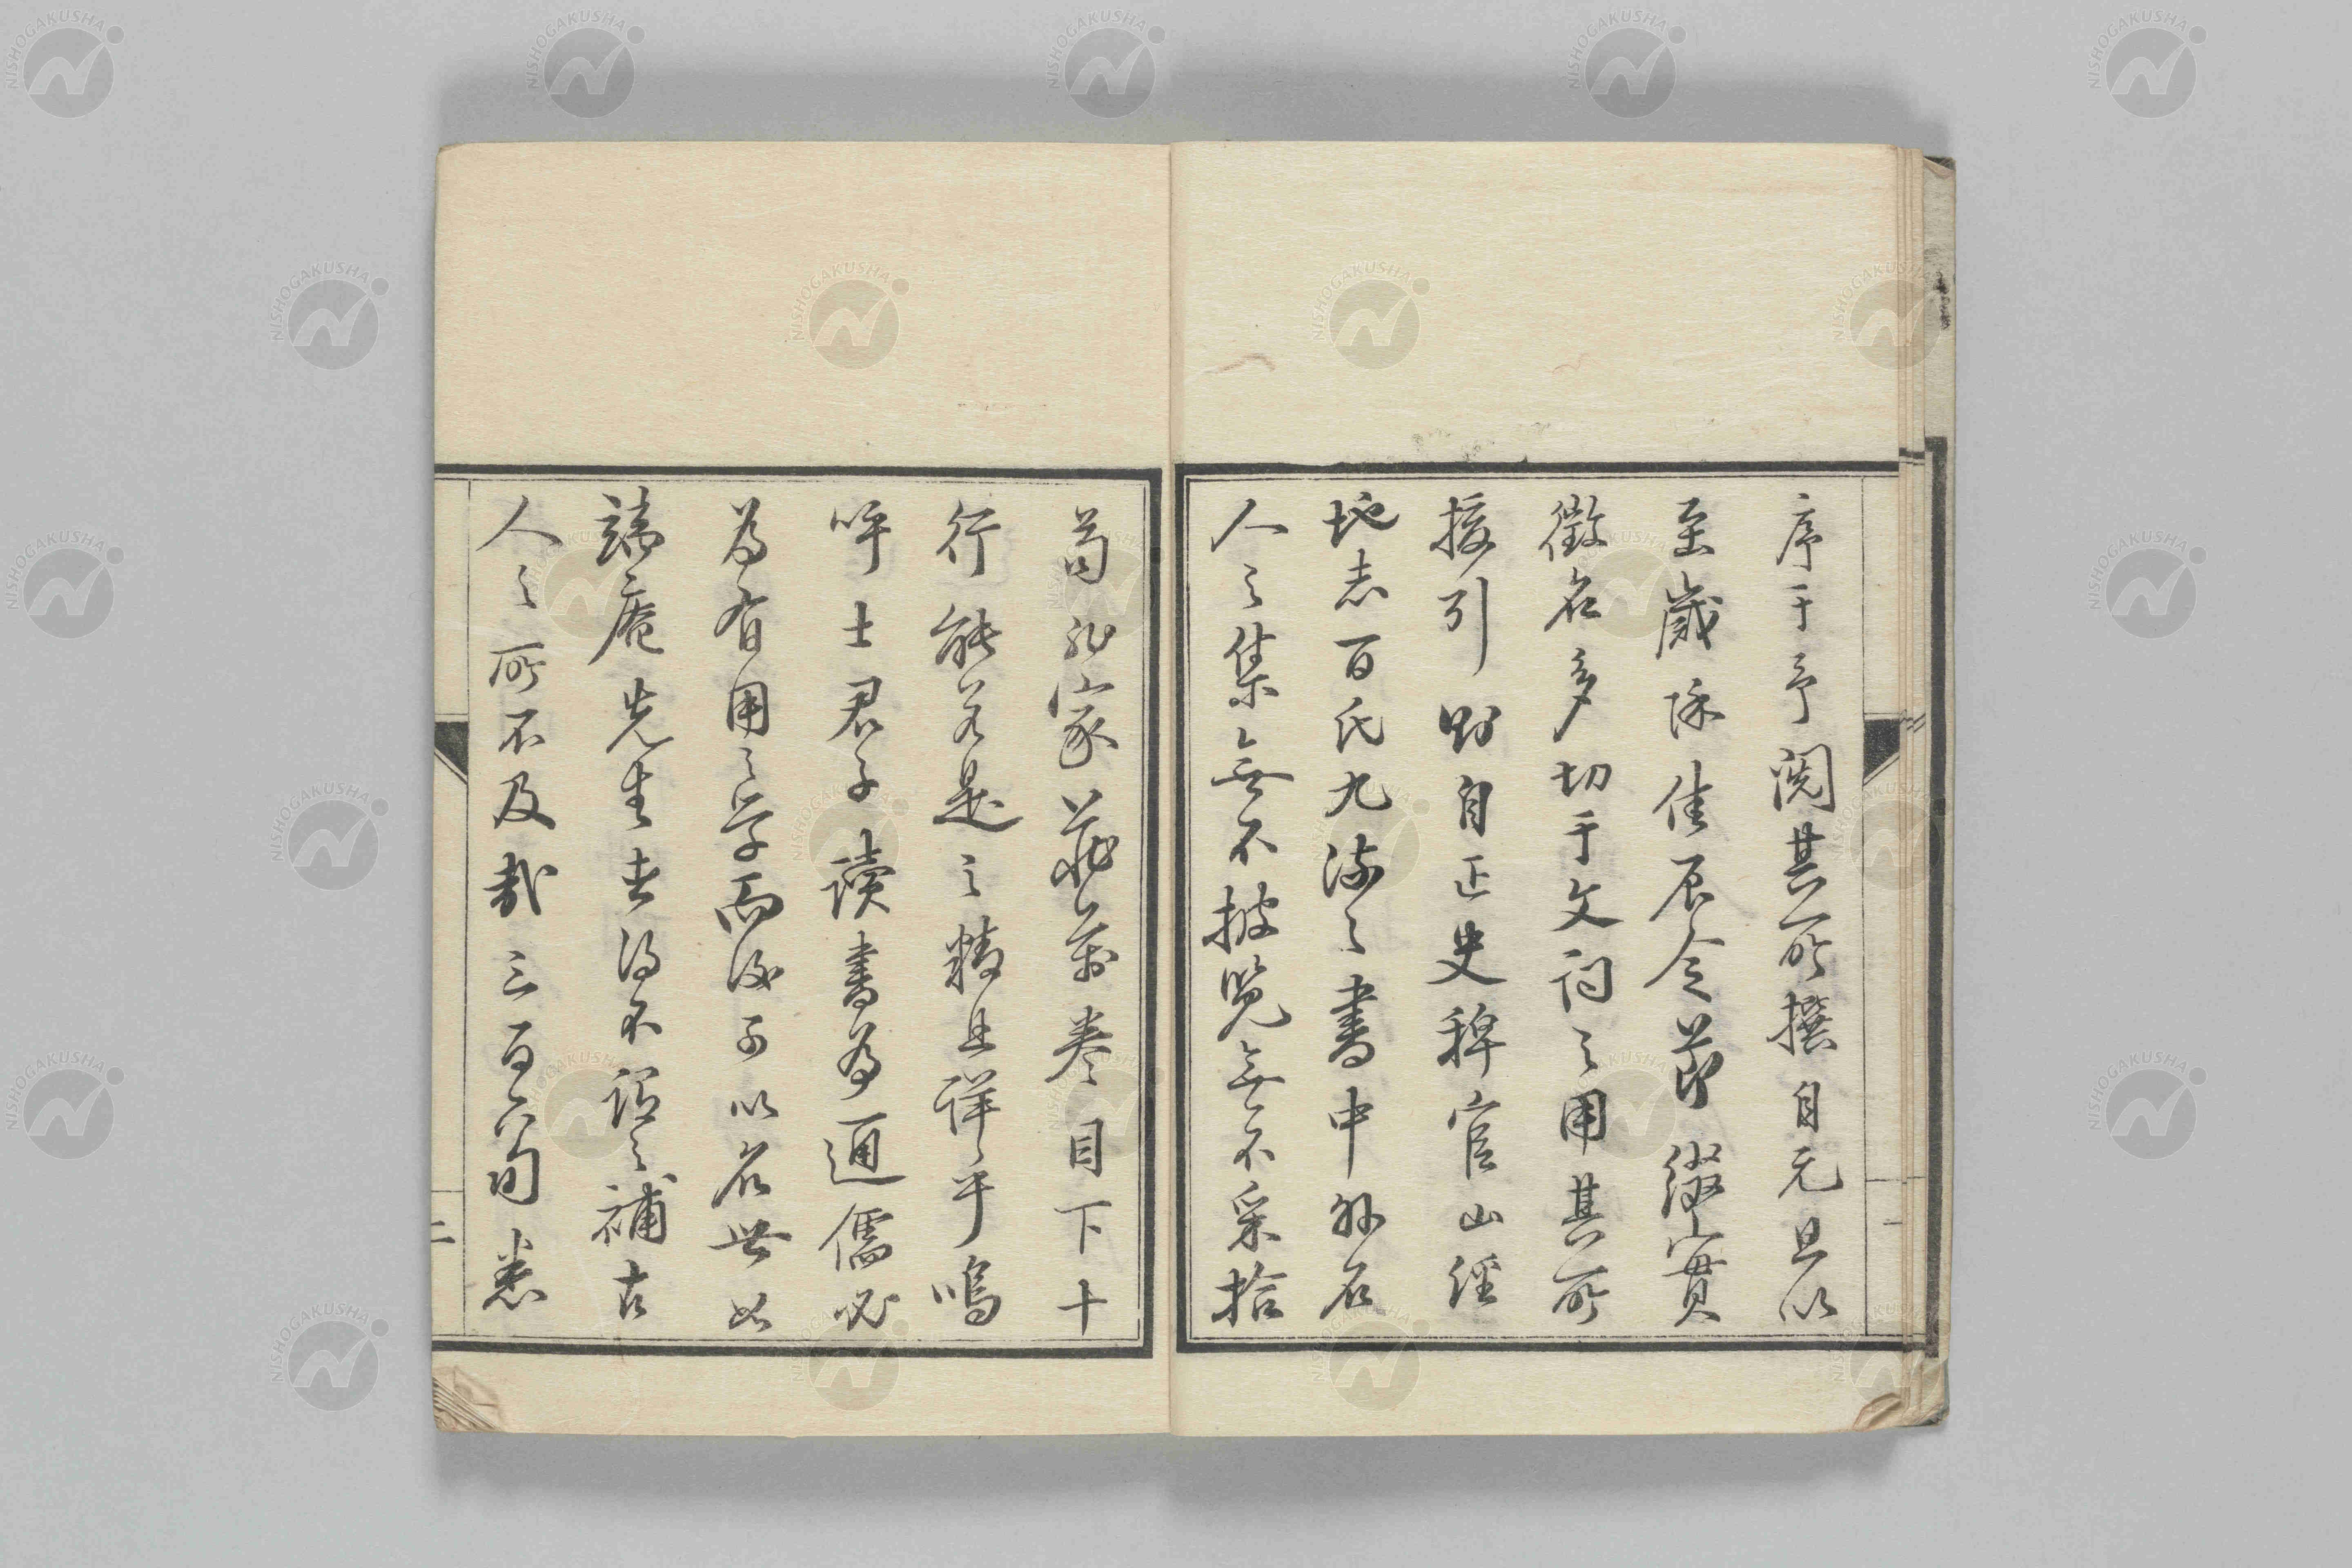 序于予閲其所撰自元旦以
至歲除佳辰令節綴實
徵名多切于文詞之用其所
援引則自正史稗官山経
地志百氏九流之書中外名
人之集無不披覧無不采拾
苟非家蔵萬巻目下十
行能若是之精且詳乎嗚
呼士君子讀書為通儒必
為有用之学而後可以名世如
端庵先生者得不謂之補古
人之所不及哉三百六旬悉
二
NISHOGAKUSHA